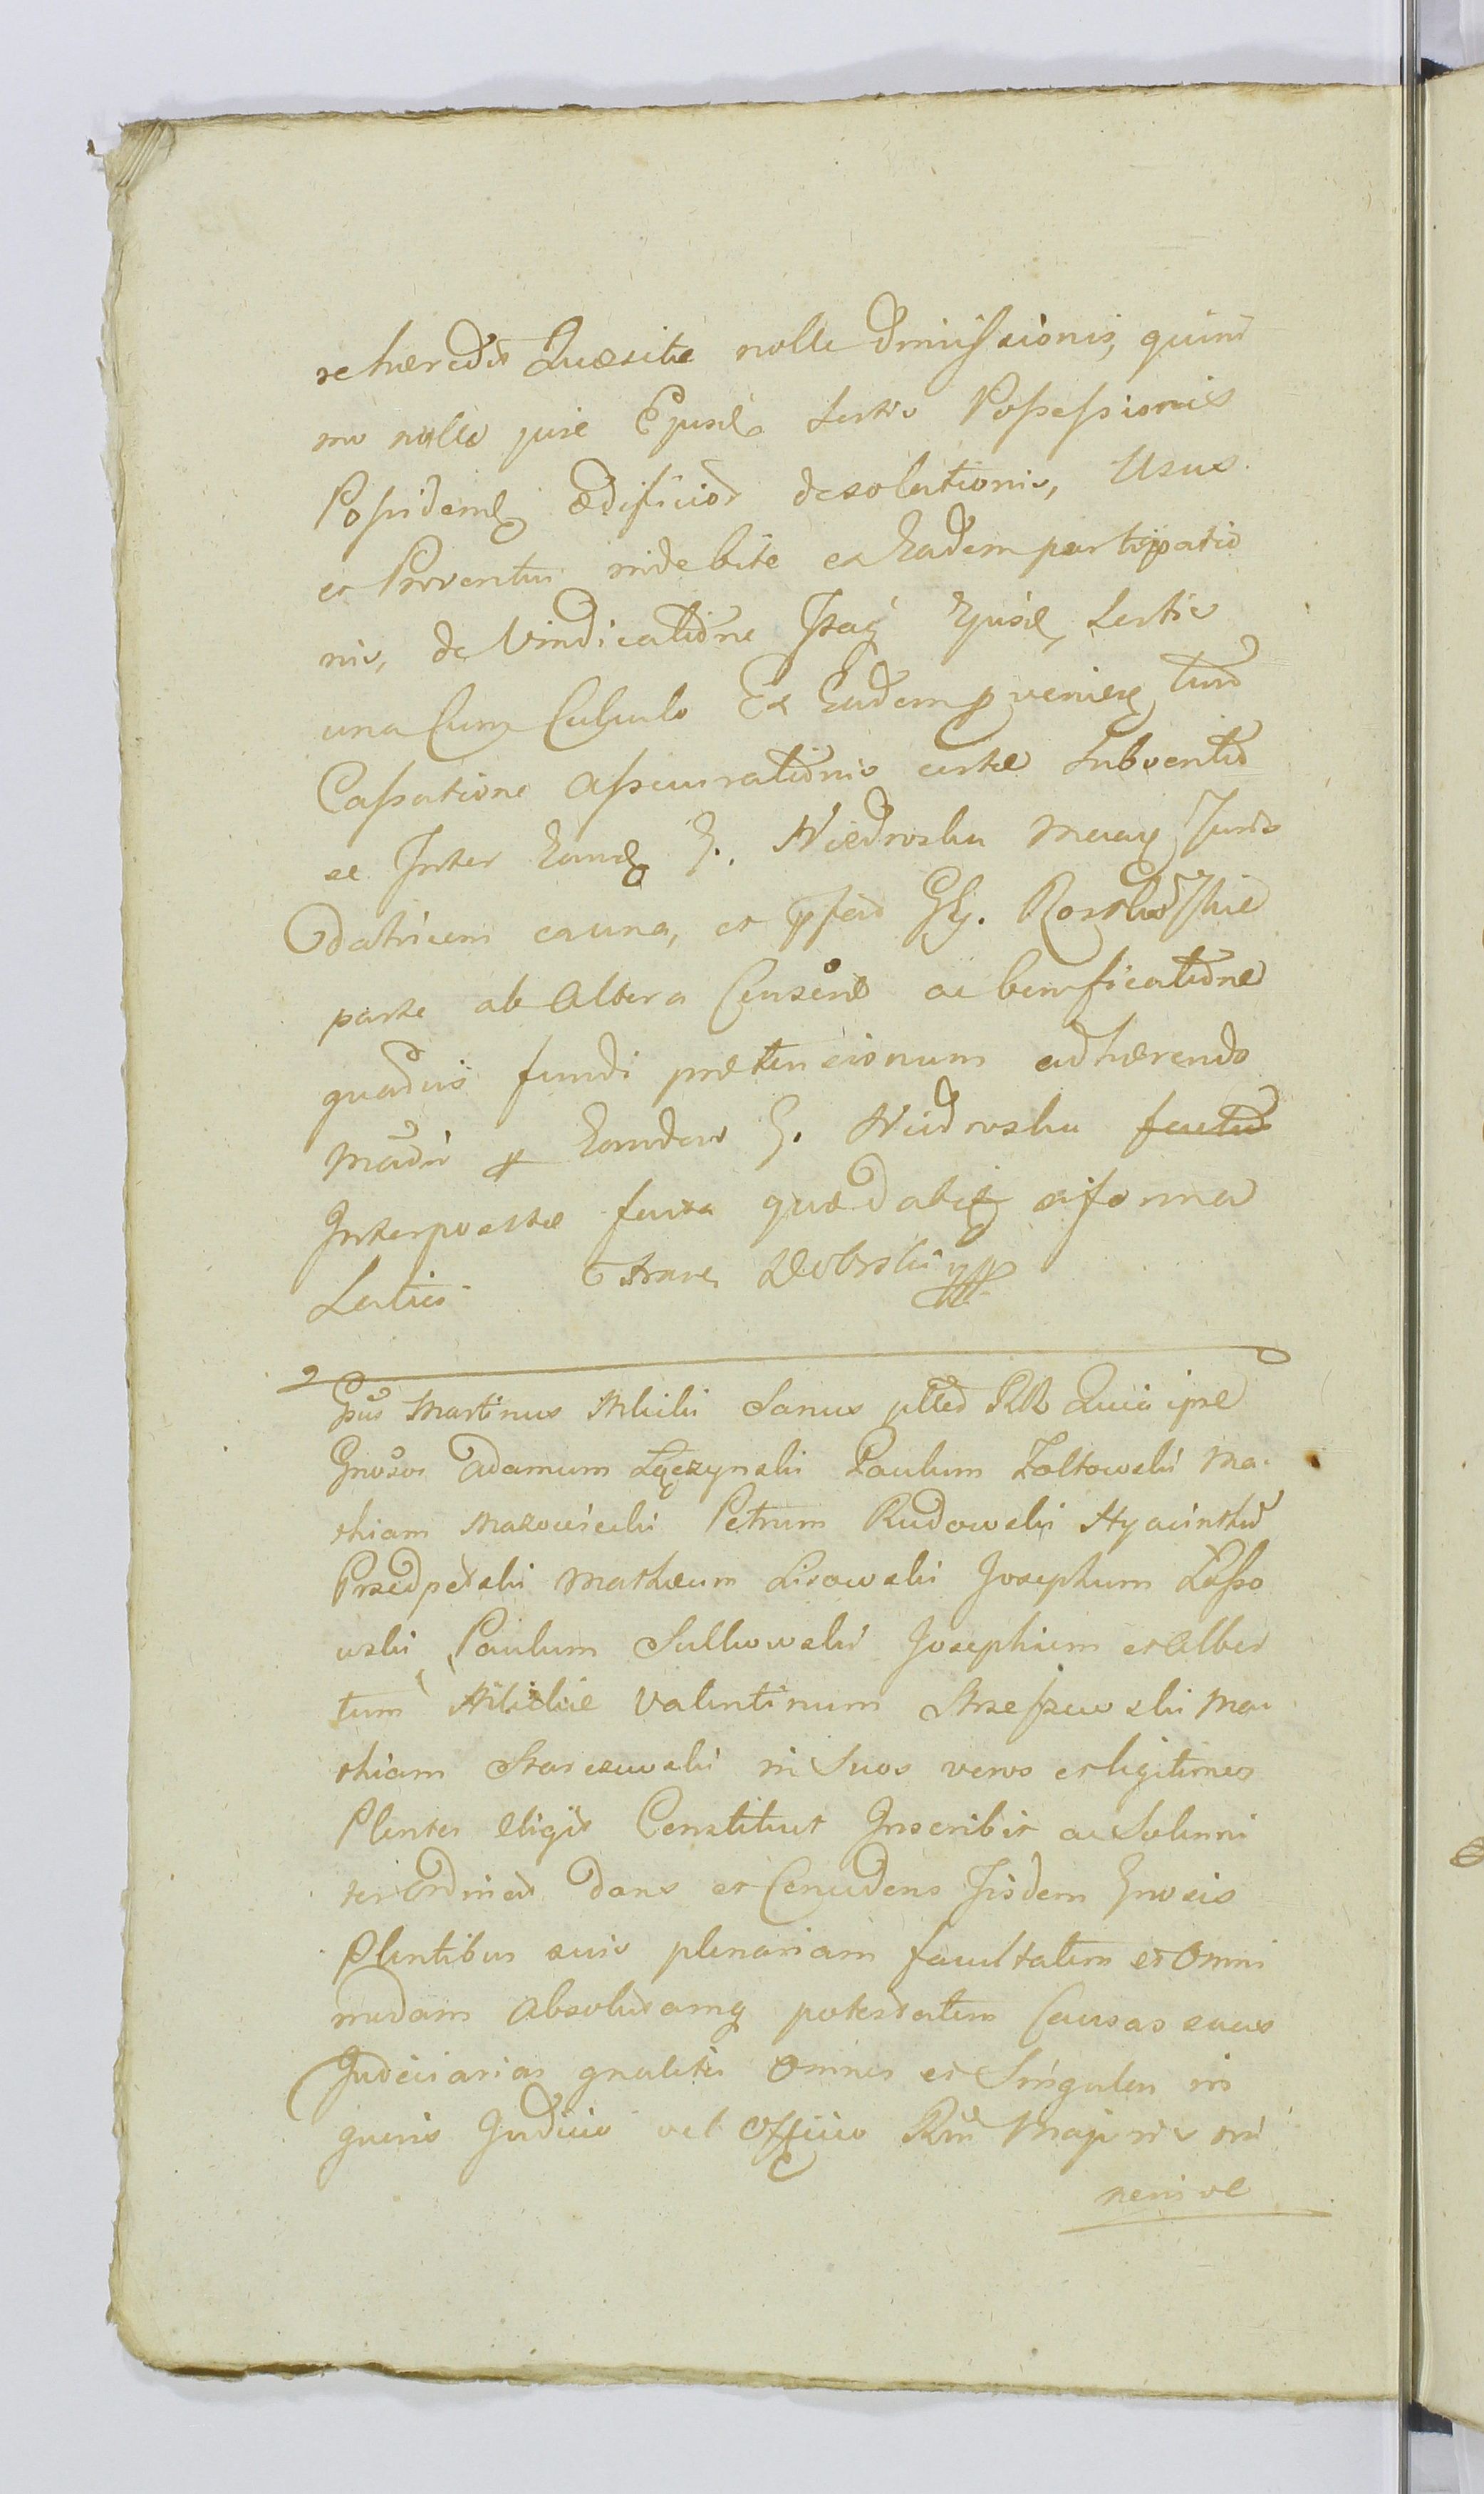 re hæredit Quæsitæ nolle Dmissionis, quini
mo nullo jure Ejusd Sortis Possessionis
Possidend ædificior desolationis, Usus
et Proventus indebite ex Eadem participatio
nis, de Vindicatione Itaq Ejusd Sortis
una Cum Calculo Ex Eadem pvenien tum
Cassatione Assecurationis certæ Subventio
se Inter Eand G. Niedroska
Datricem ex una, et GG.
parte ab Altera ac bonificatione
quavis fundi prætensionum adhærendo
p Eamdem G. Niedroska
Interpositæ facta quæd abiq
Sortis Franc Dobrski mp
Gsus Martinus Milski Sanus RR Quia ipse
Gnosos Adamum Łączynski Paulum Zołtowski Ma
thiam Mazowiecki Petrum Rudowski Hyacinthu
Przedpełski Mathæum Lisowski Josephum Lasso
wski Paulum Sulkowski Josephum et Alber
tum Milskie Valentinum Strzeszewski Ma
thiam Starczewski in Suos veros et legitimos
Plentes eligit Constituit Inscribit ac Solenni
ter Ordinat Dans et Concedens Iisdem Gnosis
Plentibus suis plenariam facultatem et Omni
modam Absolutamq potestatem Causas suas
Judiciarias gnaliter Omnes et Singulas in
quovis Judicio vel Officio Rni Majoris mi
norisve